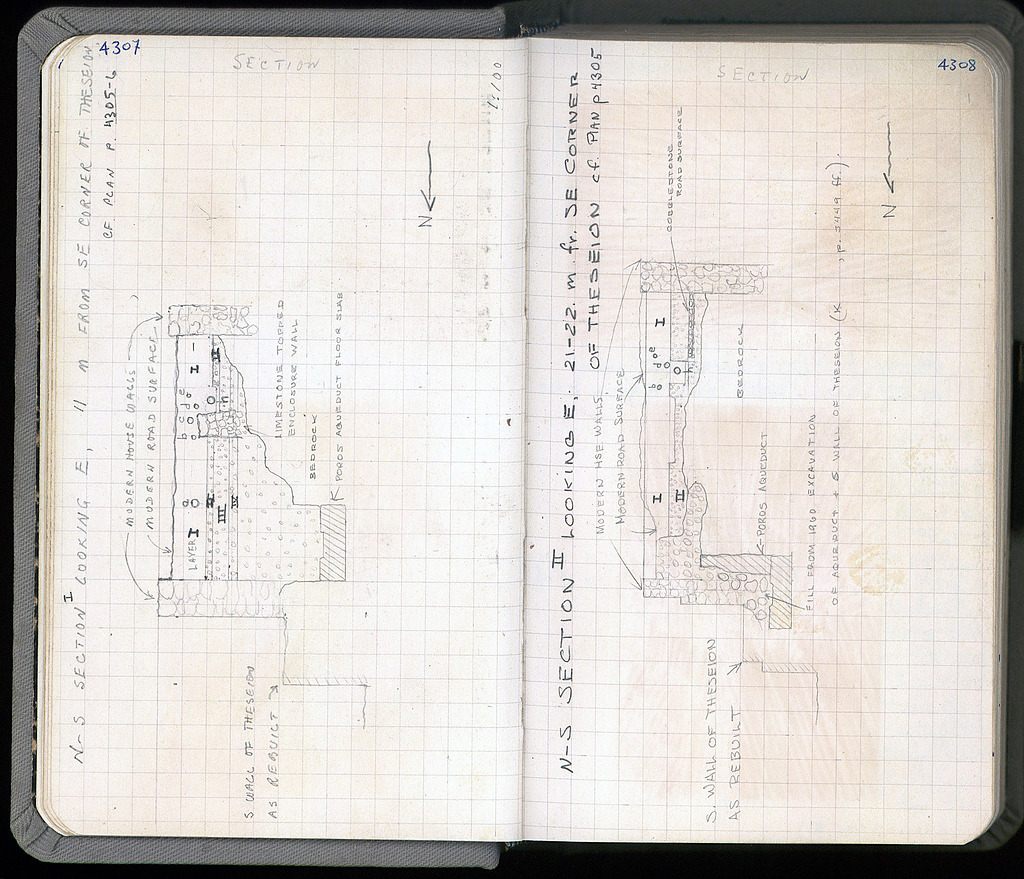 4307
SECTION
1:100
N-S SECTION I LOOKING E, 11 M FROM SE CORNER OF THESEION
CF. PLAN P. 4305-6
MODERN HOUSE WALLS
MODERN ROAD SURFACE
LAYER I
a
b c d e
I
II
III
IV
I
II
LIMESTONE TOPPED
ENCLOSURE WALL
BEDROCK
POROS AQUEDUCT FLOOR SLAB
N
S WALL OF THESEION
AS REBUILT
4308
SECTION
N-S SECTION II LOOKING E, 21-22 m fr. SE CORNER
OF THESEION cf. PLAN p 4305
MODERN HSE WALLS
MODERN ROAD SURFACE
COBBLESTONE
ROAD SURFACE
I
II
b c d e
I
h
BEDROCK
POROS AQUEDUCT
FILL FROM 1960 EXCAVATION
OF AQUEDUCT + S WALL OF THESEION (K , p. 3449 ff.).
N
S. WALL OF THESEION
AS REBUILT